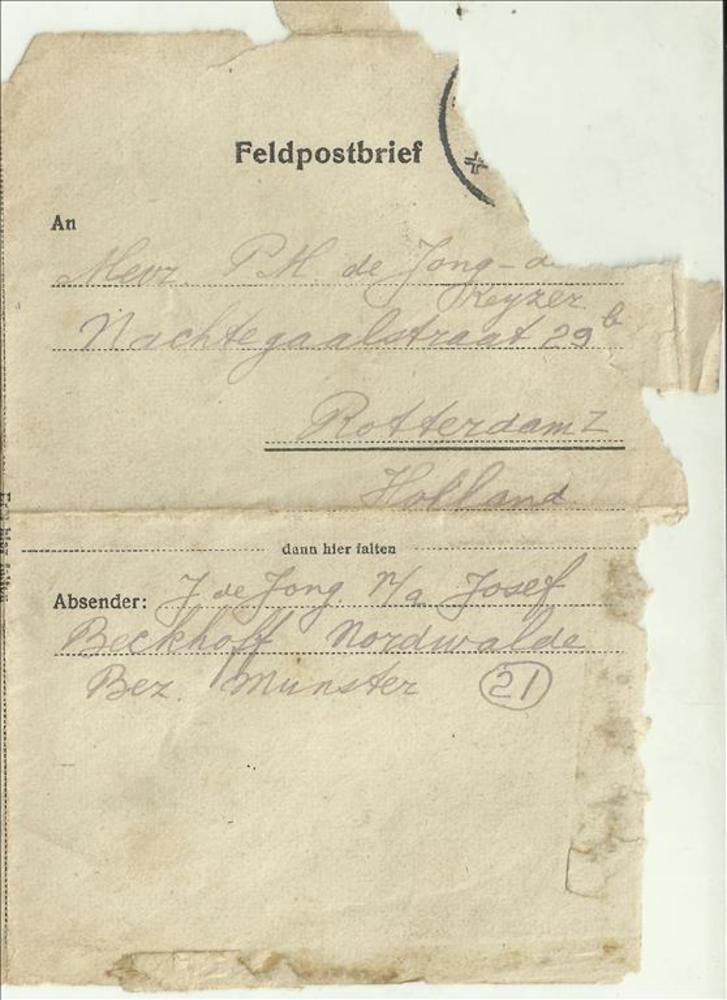 Feldpostbrief
An
Mevr. P.M. de Jong-d
Keyzer
Nachtegaalstraat 29b
Rotterdam Z
Holland
dann hier falten
Absender: J de Jong. p/a Josef
Beckhoff Nordwalde
Bez. Munster 21